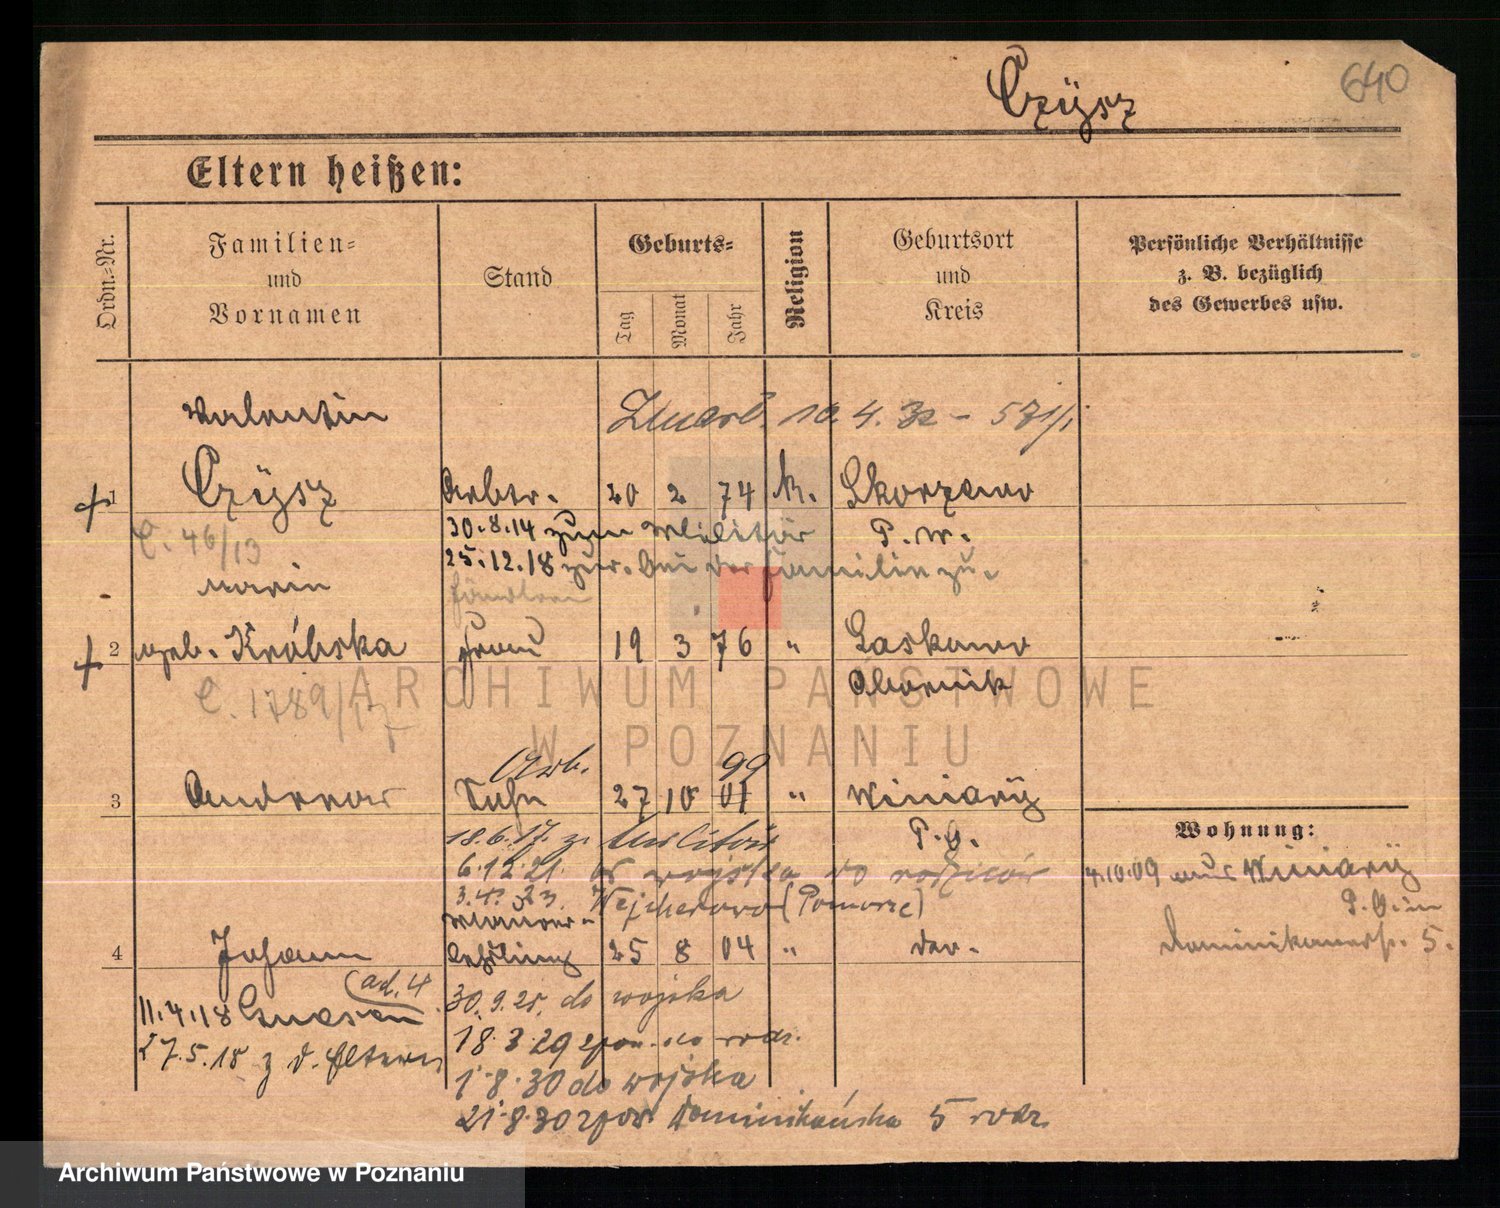 Czÿsz
640
Eltern heißen:
Ordn.-Nr.
Familien-
und
Vornamen
Stand
Geburts-
Tag
Monat
Jahr
Religion
Geburtsort
und
Kreis
Persönliche Verhältnisse
z. B. bezüglich
des Gewerbes usw.
Valentin
Zmarł 10.4.32 - 571/i
1 Czÿsz Arbtr. 20 2 74 K. Skorzewo
C. 46/13
30.8.14 zum Militär P. W.
25.12.18 zur. bei der Familie zu.
Maria
2 geb. Króliska Frau 19 3 76 " Laskowo
C. 1789/17
Obornik
Arb. 99
3 Andreas Sohn 27 10 01 " Winiarÿ
P. O.
18.6.17. z. Militär
6.12.21. z wojska do rodziców
3.4.23. Wejherowo (Pomorze)
Wohnung:
4.10.09 aus Winiarÿ
P. O. in
Dominikanerstr. 5.
4 Johann 25 8 04 " das.
(ad. 4
11.4.18 Gnesen
27.5.18 z d. Eltern
30.9.25. do wojska
18.3.29 zpow. do rodz.
1.8.30 do wojska
21.8.30 zpow. Dominikańska 5 rodz.
ARCHIWUM PAŃSTWOWE
W POZNANIU
Archiwum Państwowe w Poznaniu